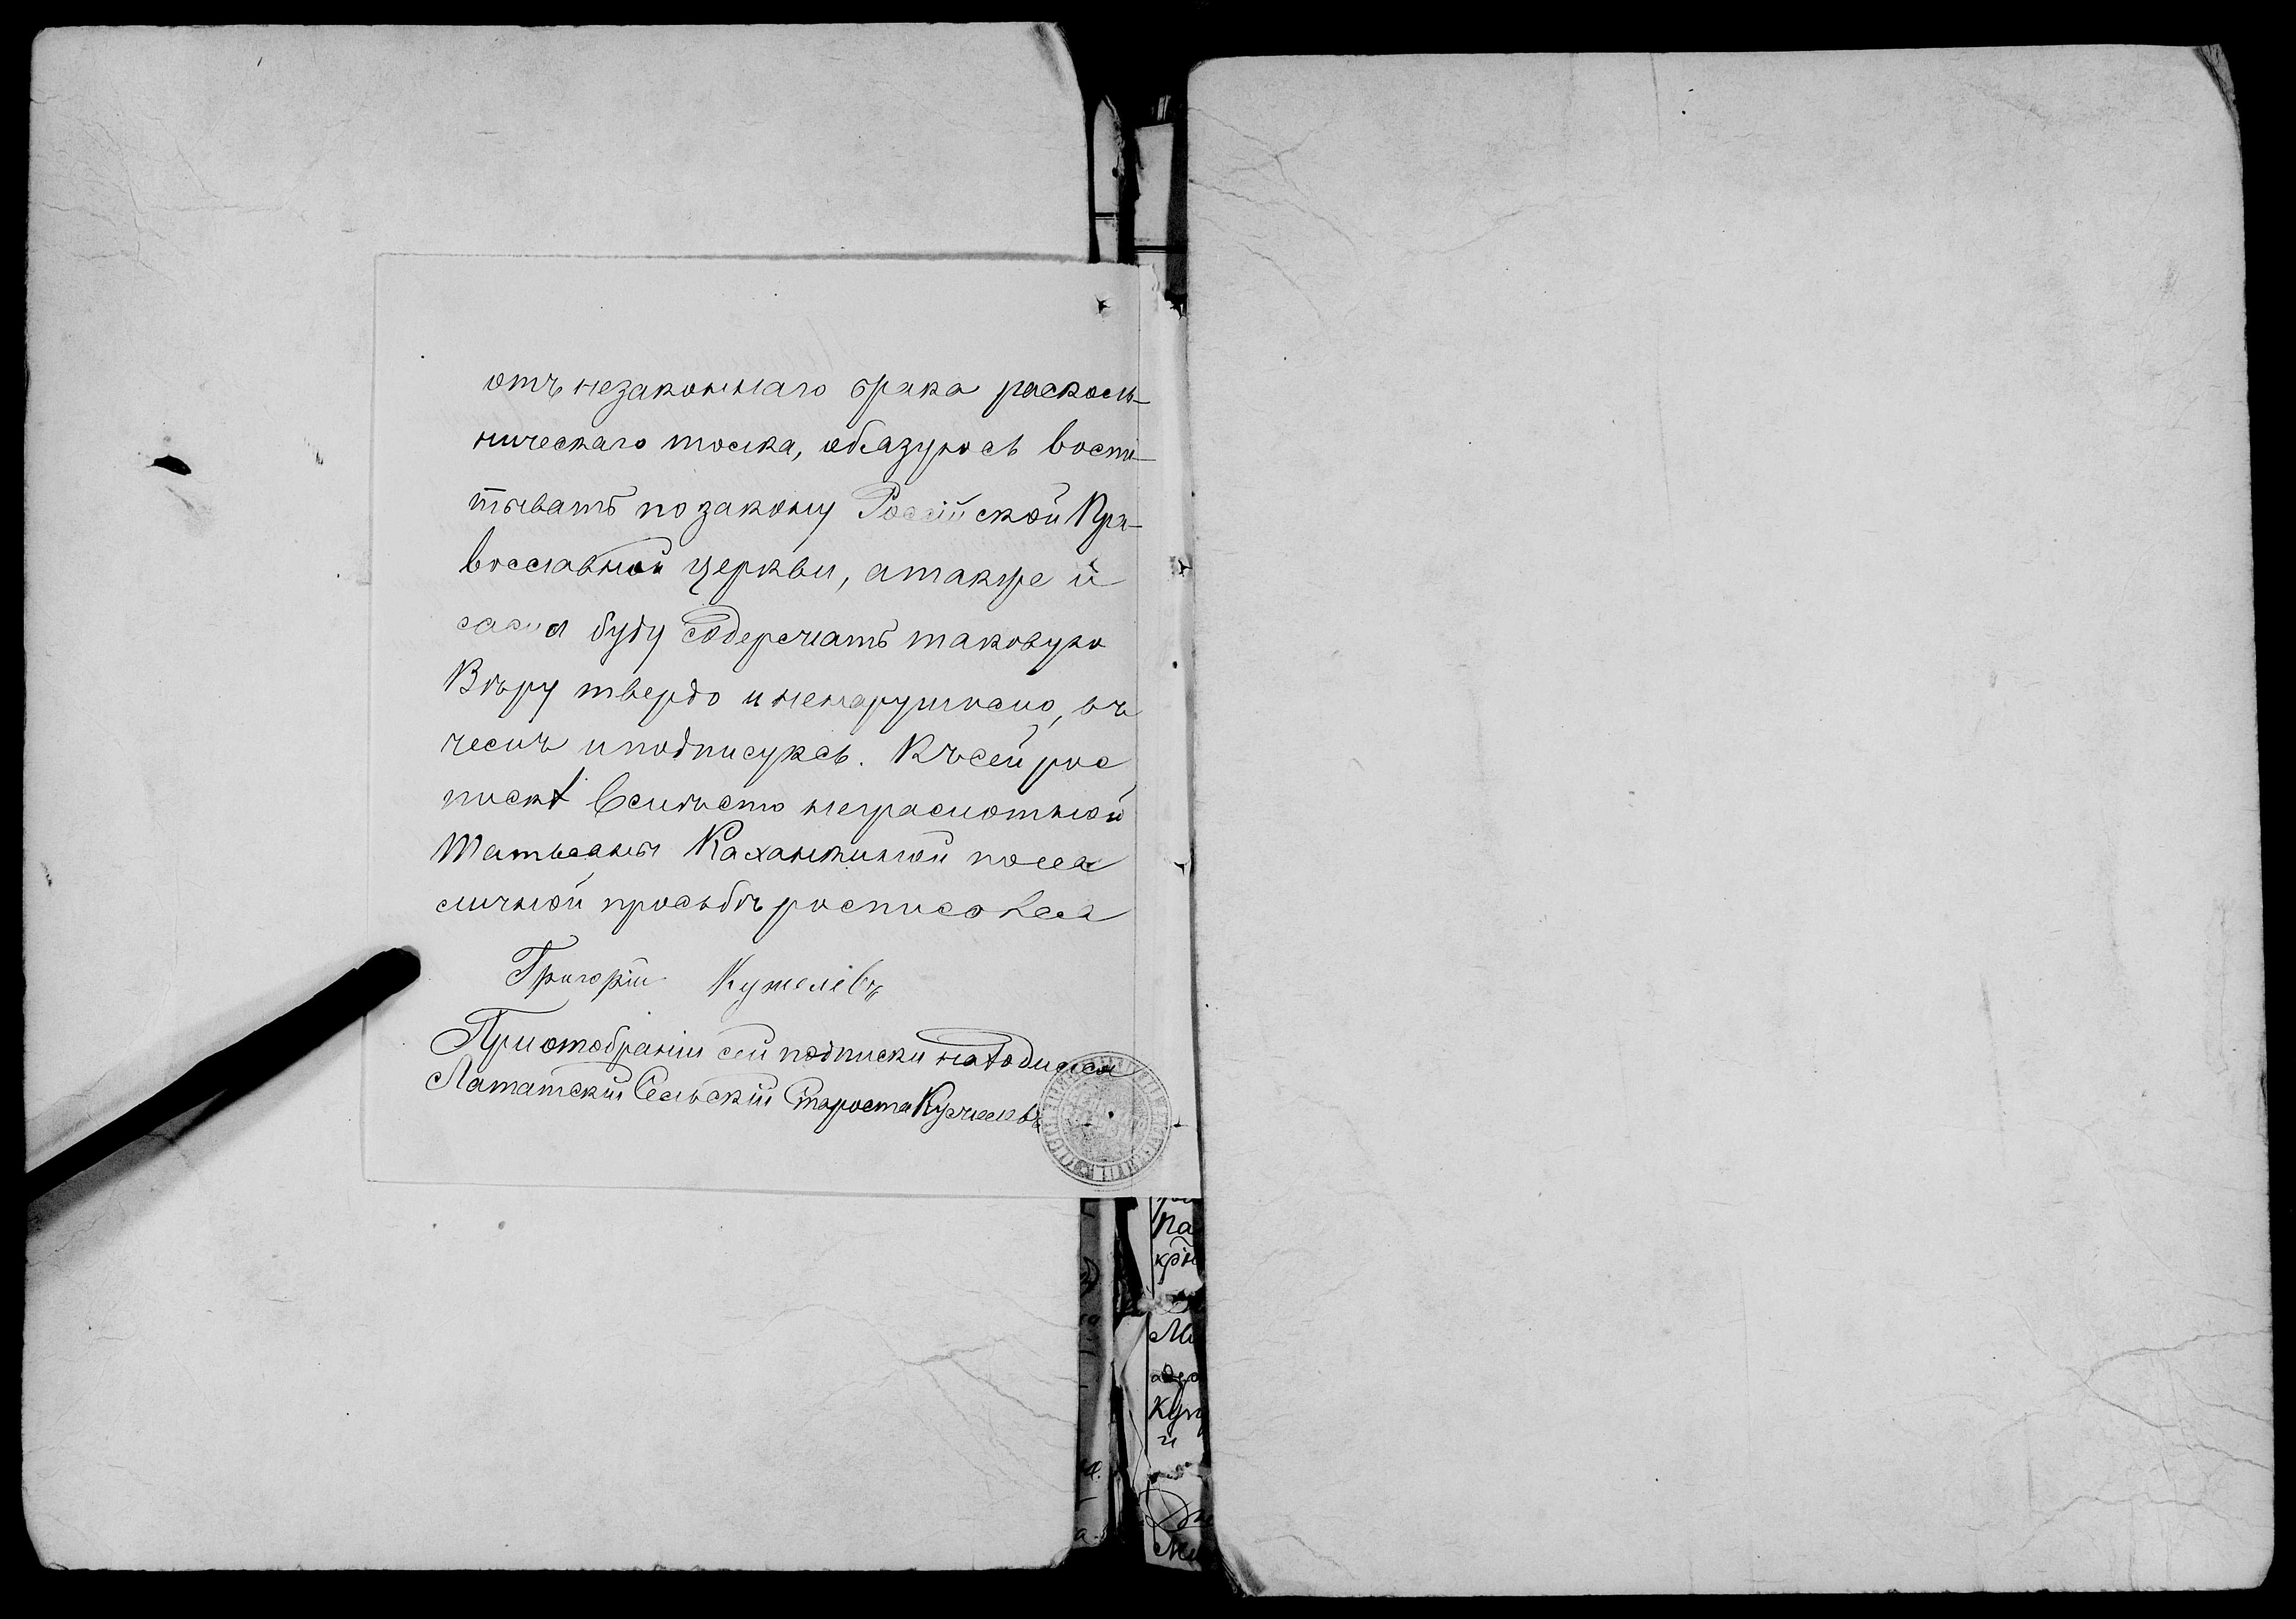 отъ незаконнаго брака расколь-
ническаго толка, обязуюсь воспи-
тывать по закону Россійской Пра-
вославной церкви, а также и
сама буду содержать таковую
Вѣру твердо и ненарушимо, въ
чемъ и подписуюсь. Къ сей рос
пискѣ вмѣсто неграмотной
Татьяны Каханкиной по ея
личной просьбѣ росписался
Григорій Кужелевъ
При отобраніи сей подписки находился
Лататскій Сельскій Староста Кужелевъ
Па
кр
Ми
Куп
и